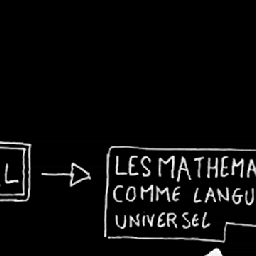 L
LES MATHEMA
COMME LANGU
UNIVERSEL